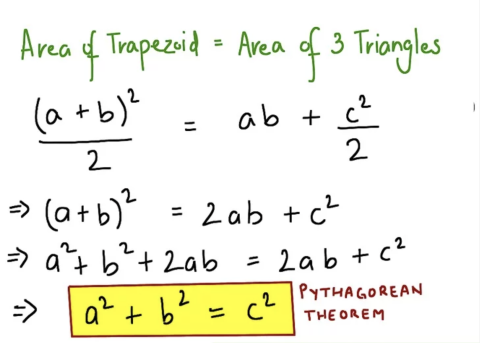 Area of Trapezoid = Area of 3 Triangles
(a + b)²/2 = ab + c²/2
⇒ (a+b)² = 2ab + c²
⇒ a² + b² + 2ab = 2ab + c²
⇒ a² + b² = c² PYTHAGOREAN THEOREM